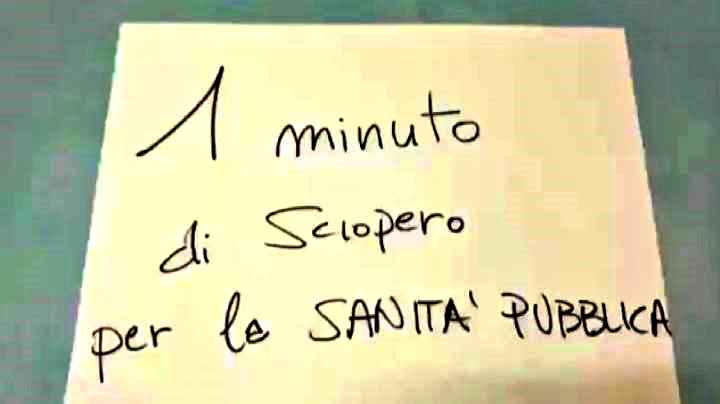 1 minuto
di Sciopero
per la SANITA' PUBBLICA